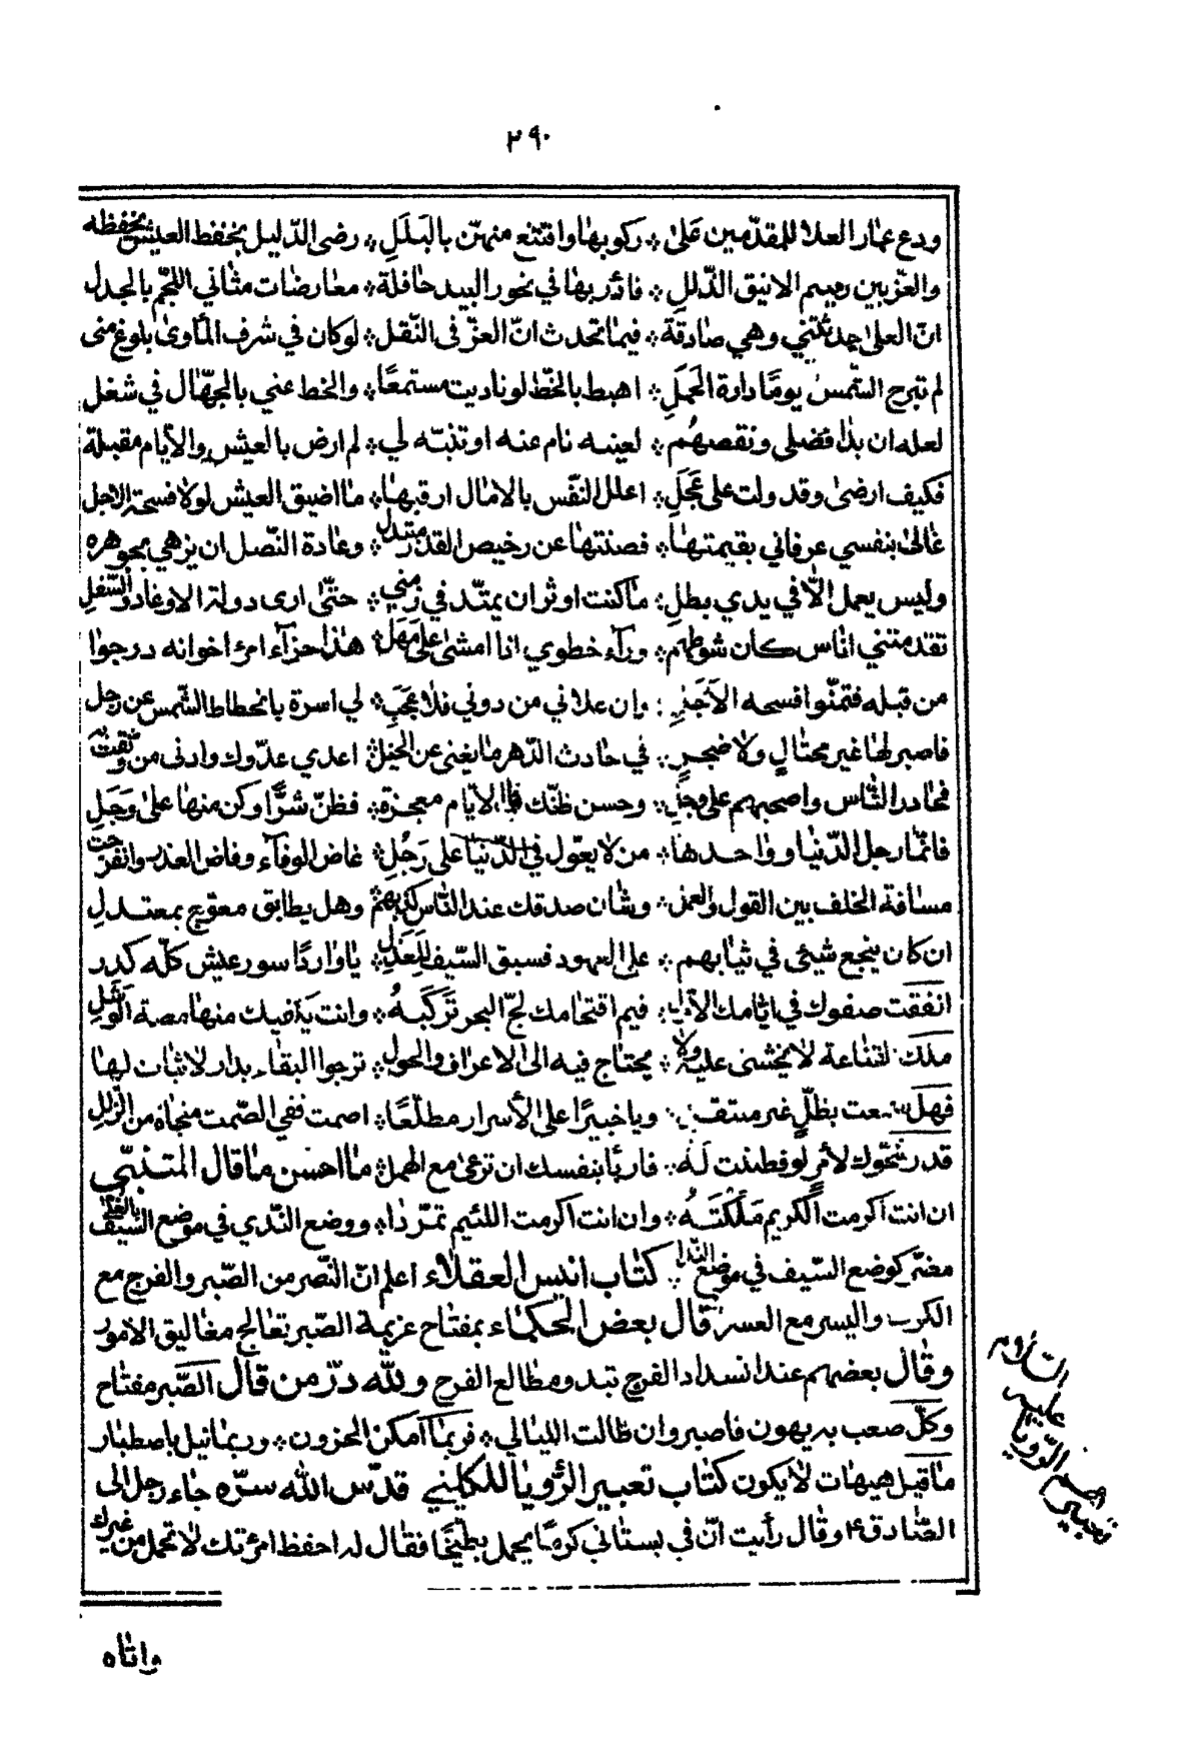 ٢٩٠
ودع غمار العلا للمقدّمين على ※ ركوبها واقتنع منهنّ بالبَلَلِ ※ رضى الذّليل بخفظ العيش يخفظه
والعزّ بين رسيم الانيق الذّللِ ※ فادرء بها في نحور البيد حافلة ※ معارضات مثاني اللجم بالجدل
انّ العلى حدثتني وهي صادقة ※ فيما تحدث انّ العزّ فى النّقل ※ لو كان في شرف المأوى بلوغ منى
لم تبرح الشّمس يومًا دارة الحَمَلِ ※ اهبط بالخّط لو ناديت مستمعًا ※ والخط عني بالجهّال في شغل
لعله ان بدا فضلي ونقصهُم ※ لعينه نام عنه او تنبّه لي ※ لم ارض بالعيش والأيام مقبلة
فكيف ارضى وقد ولت على عَجَلِ ※ اعلل النّفس بالامال ارقبها ※ ما اضيق العيش لولا فسحة الاجل
غالى بنفسي عرفاني بقيمتها ※ فصنتها عن رخيص القدر مبتذل ※ وعادة النّصل ان يزهي بجوهره
وليس يعمل الّا في يدي بطلِ ※ ما كنت اوثر ان يمتّد في زمني ※ حتّى ارى دولة الاوغاد والسّفلِ
تقدمتني اناس كان شوطهم ※ ورآء خطوي اذا امشى على مَهَل ※ هذا جزآء امرء اخوانه درجوا
من قبله فتمنّوا فسحه الأجَلِ ※ وان علاني من دوني فلا عجَبَ ※ لي اسرة بانحطاط الشّمس عن زحل
فاصبر لها غير محتالٍ ولا ضجرٍ ※ في حادث الدّهر ما يغنى عن الحيل ※ اعدي عدّوك وادنى من وثقت به
فحاذر النّاس واصحبهم على دجلٍ ※ وحسن ظنّك بالايّام معجزة ※ فظنّ شرًّا وكن منها على وَجَلِ
فانّما رجل الدّنيا وواحدها ※ من لا يعوّل في الدّنيا على رَجُلِ ※ غاض الوفآء وفاض الغدر وانفرجت
مسافة الخلف بين القول والعمل ※ وشان صدقك عند النّاس كذبهم ※ وهل يطابق معوّج بمعتدلِ
ان كان ينجع شيئى في ثيابهم ※ على العهود فسبق السّيف للعذل ※ يا واردًا سور عيش كلّه كدر
انفقت صفوك في ايّامك الأولِ ※ فيم اقتحامك لجّ البحر تَركَبَهُ ※ وانت يكفيك منها مصة الوَشَلِ
ملك القناعة لا يخشى عليه ولا ※ يحتاج فيه الى الاعراف والحول ※ ترجوا البقاء بدار لا ثبات لها
فهل سمعت بظلّ غير منتقل ※ ويا خبيرًا على الأسرار مطلّعًا ※ اصمت ففي الصّمت منجاه من الزّلل
قد رشّحوك لأمرٍ لو فطنت لَهُ ※ فاربأ بنفسك ان ترعى مع الهمل ※ ما احسن ما قال المتنبّى
ان انت اكرمت الكريم مَلَكْتَهُ ※ وان انت اكرمت اللئيم تمرّدا ※ ووضع النّدي في موضع السّيف بالعُلا
مضرّ كوضع السّيف في موضع النّدا ※ كتاب انيس العقلاء اعلم انّ النّصر من الصّبر والفرج مع
الكرب واليسر مع العسر قال بعض الحكماء بمفتاح عزيمة الصّبر تعالج مغاليق الامور
وقال بعضهم عند انسداد الفرج تبدو مطالع الفرج ولله درّ من قال الصّبر مفتاح
وكلّ صعب به يهون فاصبر وان طالت الليالي ※ فربّما امكن الحزون ※ وربما نيل باصطبار
ما قيل هيهات لا يكون كتاب تعبير الرّؤيا للكليني قدّس الله سرّه جاء رجل الى
الصّادق ع وقال رأيت انّ في بستاني كرمًا يحمل بطّيخًا فقال له احفظ امرئتك لا تحمل من غيرك
واتاه
تعبير الرّويا
عليه السّلام